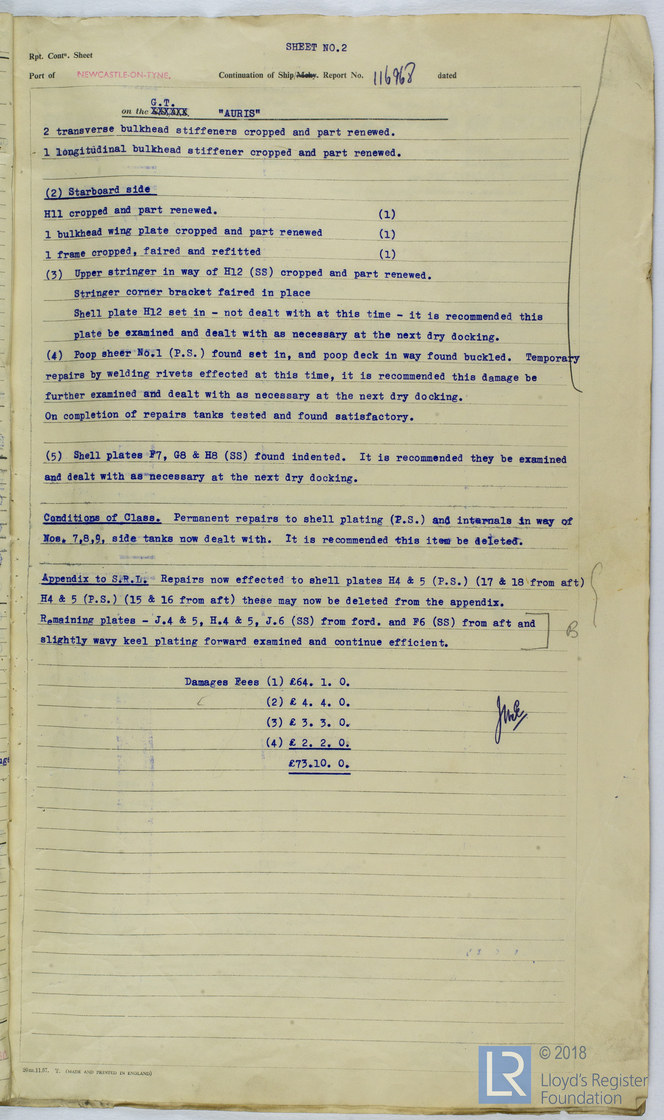 SHEET NO.2
Rpt. Contn. Sheet
Port of NEWCASTLE-ON-TYNE. Continuation of Ship/Mchy. Report No. 116968 dated
G.T.
on the XXXXXX "AURIS"
2 transverse bulkhead stiffeners cropped and part renewed.
1 longitudinal bulkhead stiffener cropped and part renewed.
(2) Starboard side
H11 cropped and part renewed. (1)
1 bulkhead wing plate cropped and part renewed (1)
1 frame cropped, faired and refitted (1)
(3) Upper stringer in way of H12 (SS) cropped and part renewed.
Stringer corner bracket faired in place
Shell plate H12 set in - not dealt with at this time - it is recommended this
plate be examined and dealt with as necessary at the next dry docking.
(4) Poop sheer No.1 (P.S.) found set in, and poop deck in way found buckled. Temporary
repairs by welding rivets effected at this time, it is recommended this damage be
further examined and dealt with as necessary at the next dry docking.
On completion of repairs tanks tested and found satisfactory.
(5) Shell plates F7, G8 & H8 (SS) found indented. It is recommended they be examined
and dealt with as necessary at the next dry docking.
Conditions of Class. Permanent repairs to shell plating (P.S.) and internals in way of
Nos. 7,8,9, side tanks now dealt with. It is recommended this item be deleted.
Appendix to S.R.L. Repairs now effected to shell plates H4 & 5 (P.S.) (17 & 18 from aft)
H4 & 5 (P.S.) (15 & 16 from aft) these may now be deleted from the appendix.
Remaining plates - J.4 & 5, H.4 & 5, J.6 (SS) from ford. and F6 (SS) from aft and
slightly wavy keel plating forward examined and continue efficient.
B
Damages Fees (1) £64. 1. 0.
(2) £ 4. 4. 0.
(3) £ 3. 3. 0.
(4) £ 2. 2. 0.
£73.10. 0.
20m.11.57. T. (MADE AND PRINTED IN ENGLAND)
LR
© 2018
Lloyd's Register
Foundation